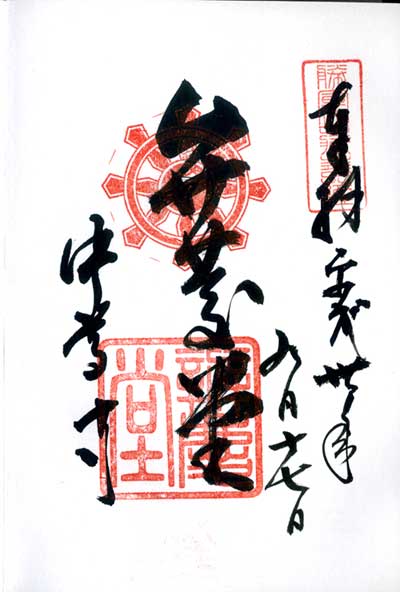 奉拝 平成丗年
九月十七日
弁慶堂
中尊寺